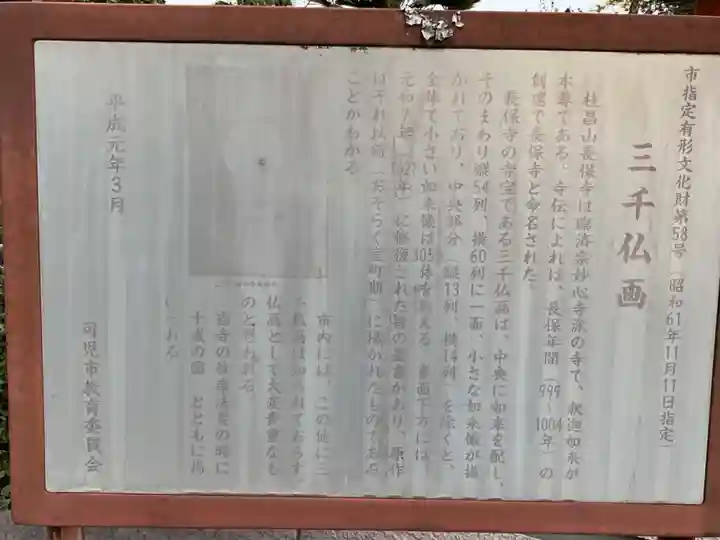 市指定有形文化財第58号（昭和61年11月11日指定）
三千仏画
桂昌山長保寺は臨済宗妙心寺派の寺で、釈迦如来が
本尊である。寺伝によれば、長保年間（999〜1004年）の
創建で長保寺と命名された。
長保寺の寺宝である三千仏画は、中央に如来を配し、
そのまわり縦54列、横60列に一面、小さな如来像が描
かれており、中央部分（縦13列、横14列）を除くと、
全体で小さい如来像は
元和 年 に修復された旨の墨書があり、原作
はそれ以前（おそらく室町期）に描かれたものである
ことがわかる
市内には、この他に三
千仏画は知られておらず、
仏画として大変貴重なも
のと思われる
当寺の 時に
十 の図 とともに掲
られる
平成元年3月
可児市教育委員会